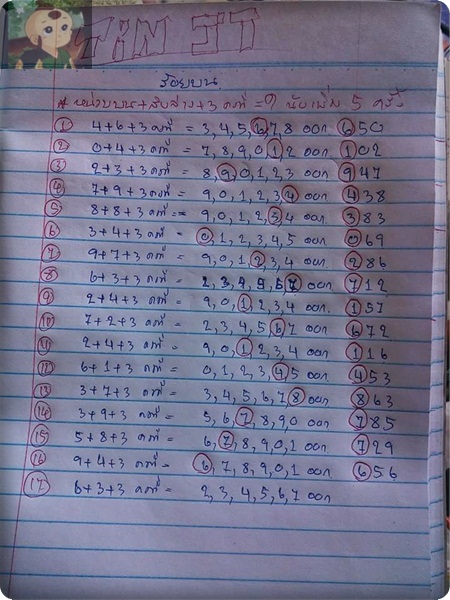 TiN JT
ร้อยบน
# หน่วยบน+สิบล่าง+3 คงที่ =? นับเพิ่ม 5 ครั้ง
① 4+6+3 คงที่ = 3,4,5,6,7,8 ออก 650
② 0+4+3 คงที่ = 7,8,9,0,1,2 ออก 102
③ 2+3+3 คงที่ = 8,9,0,1,2,3 ออก 947
④ 7+9+3 คงที่ = 9,0,1,2,3,4 ออก 438
⑤ 8+8+3 คงที่ = 9,0,1,2,3,4 ออก 383
⑥ 3+4+3 คงที่ = 0,1,2,3,4,5 ออก 069
⑦ 9+7+3 คงที่ = 9,0,1,2,3,4 ออก 286
⑧ 6+3+3 คงที่ = 2,3,4,5,6,7 ออก 712
⑨ 2+4+3 คงที่ = 9,0,1,2,3,4 ออก 157
⑩ 7+2+3 คงที่ = 2,3,4,5,6,7 ออก 672
⑪ 2+4+3 คงที่ = 9,0,1,2,3,4 ออก 116
⑫ 6+1+3 คงที่ = 0,1,2,3,4,5 ออก 453
⑬ 3+7+3 คงที่ = 3,4,5,6,7,8 ออก 863
⑭ 3+9+3 คงที่ = 5,6,7,8,9,0 ออก 785
⑮ 5+8+3 คงที่ = 6,7,8,9,0,1 ออก 729
⑯ 9+4+3 คงที่ = 6,7,8,9,0,1 ออก 656
⑰ 6+3+3 คงที่ = 2,3,4,5,6,7 ออก